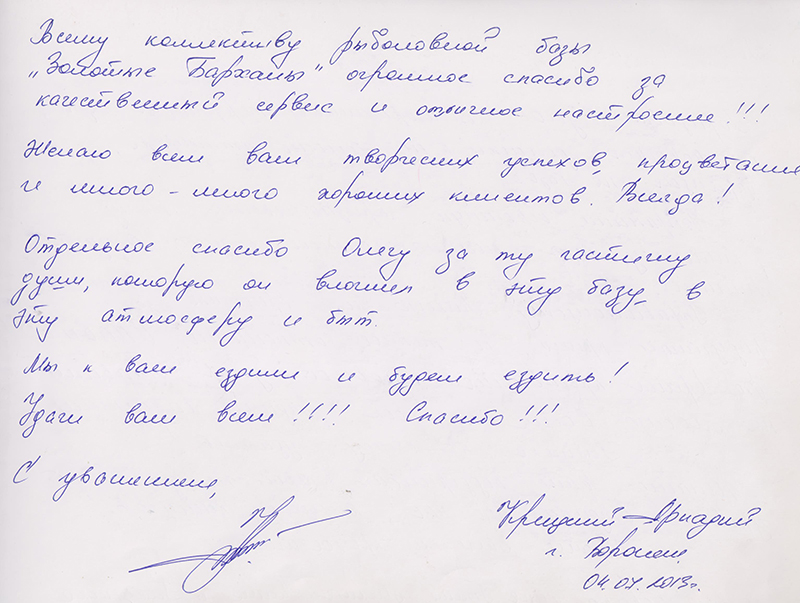 Всему коллективу рыболовной базы
„Золотые Барханы" огромное спасибо за
качественный сервис и отличное настроение!!!
Желаю всем вам творческих успехов, процветания
и много-много хороших клиентов. Всегда!
Отдельное спасибо Олегу за ту частичку
души, которую он вложил в эту базу, в
эту атмосферу и быт.
Мы к вам ездили и будем ездить!
Удачи вам всем!!!! Спасибо!!!
С уважением,
Аркадий
г. Воронеж
04.07.2013г.